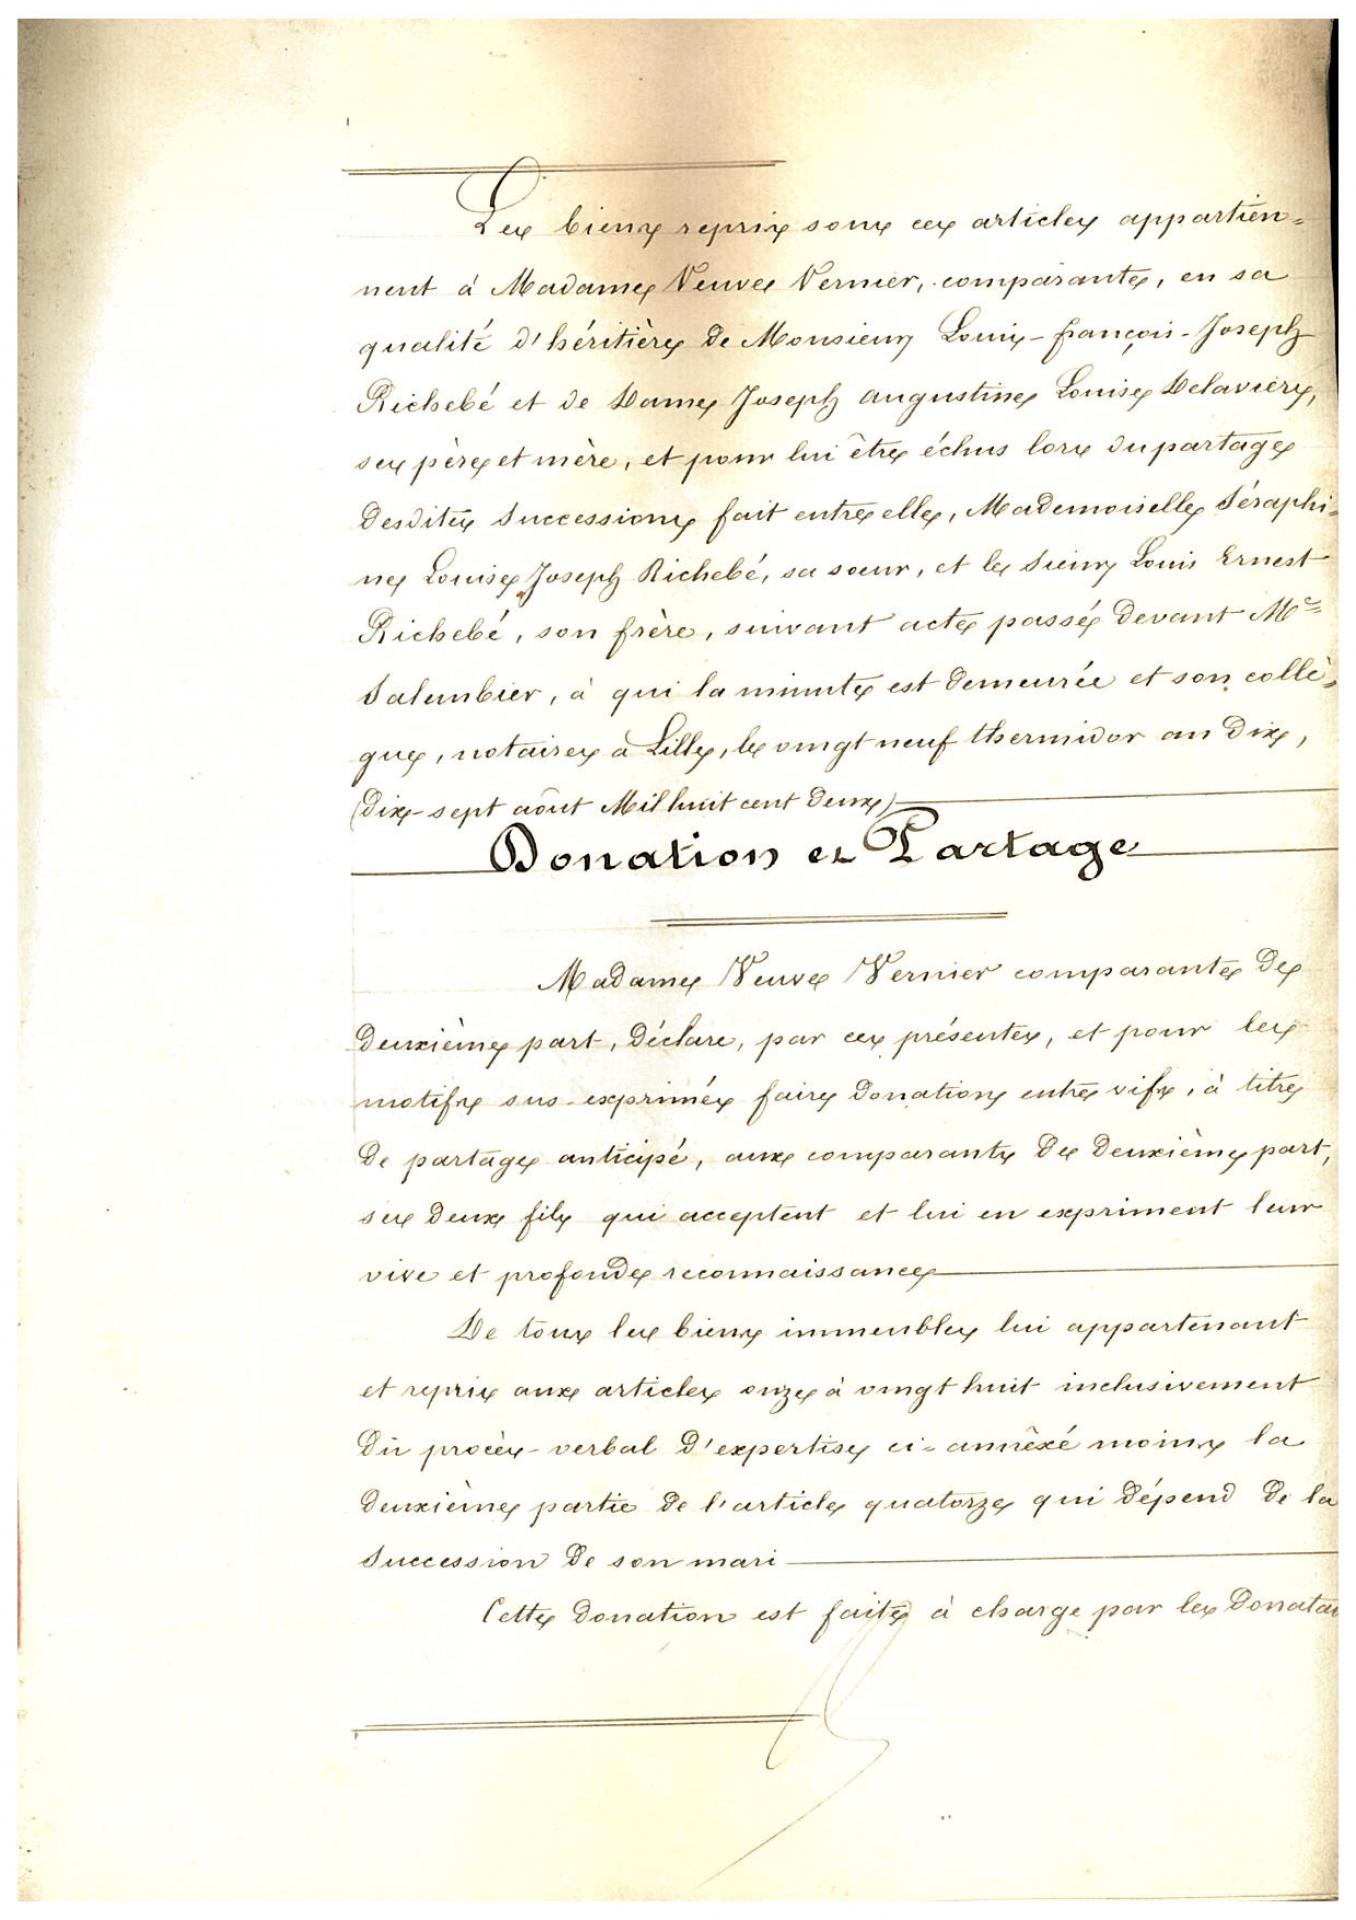 Les biens repris sous ces articles appartien=
nent à Madame Veuve Vernier, comparante, en sa
qualité d'héritière de Monsieur Louis-françois-Joseph
Richebé et de Dame Joseph augustine Louise Delavière,
ses père et mère, et pour lui être échus lors du partage
desdites successions fait entre elle, Mademoiselle Séraphi=
ne Louise Joseph Richebé, sa sœur, et le sieur Louis Ernest
Richebé, son frère, suivant acte passé devant Me
Salembier, à qui la minute est demeurée et son collè=
gue, notaires à Lille, le vingt neuf thermidor an dix,
(dix-sept août Mil huit cent deux)
Donation et Partage
Madame Veuve Vernier comparante de
deuxième part, déclare, par ces présentes, et pour les
motifs sus-exprimés faire donation entre vifs, à titre
de partage anticipé, aux comparants de deuxième part,
ses deux fils qui acceptent et lui en expriment leur
vive et profonde reconnaissance
De tous les biens immeubles lui appartenant
et repris aux articles onze à vingt huit inclusivement
du procès-verbal d'expertise ci=annéxé moins la
deuxième partie de l'article quatorze qui dépend de la
succession de son mari
Cette donation est faite à charge par les Donatai